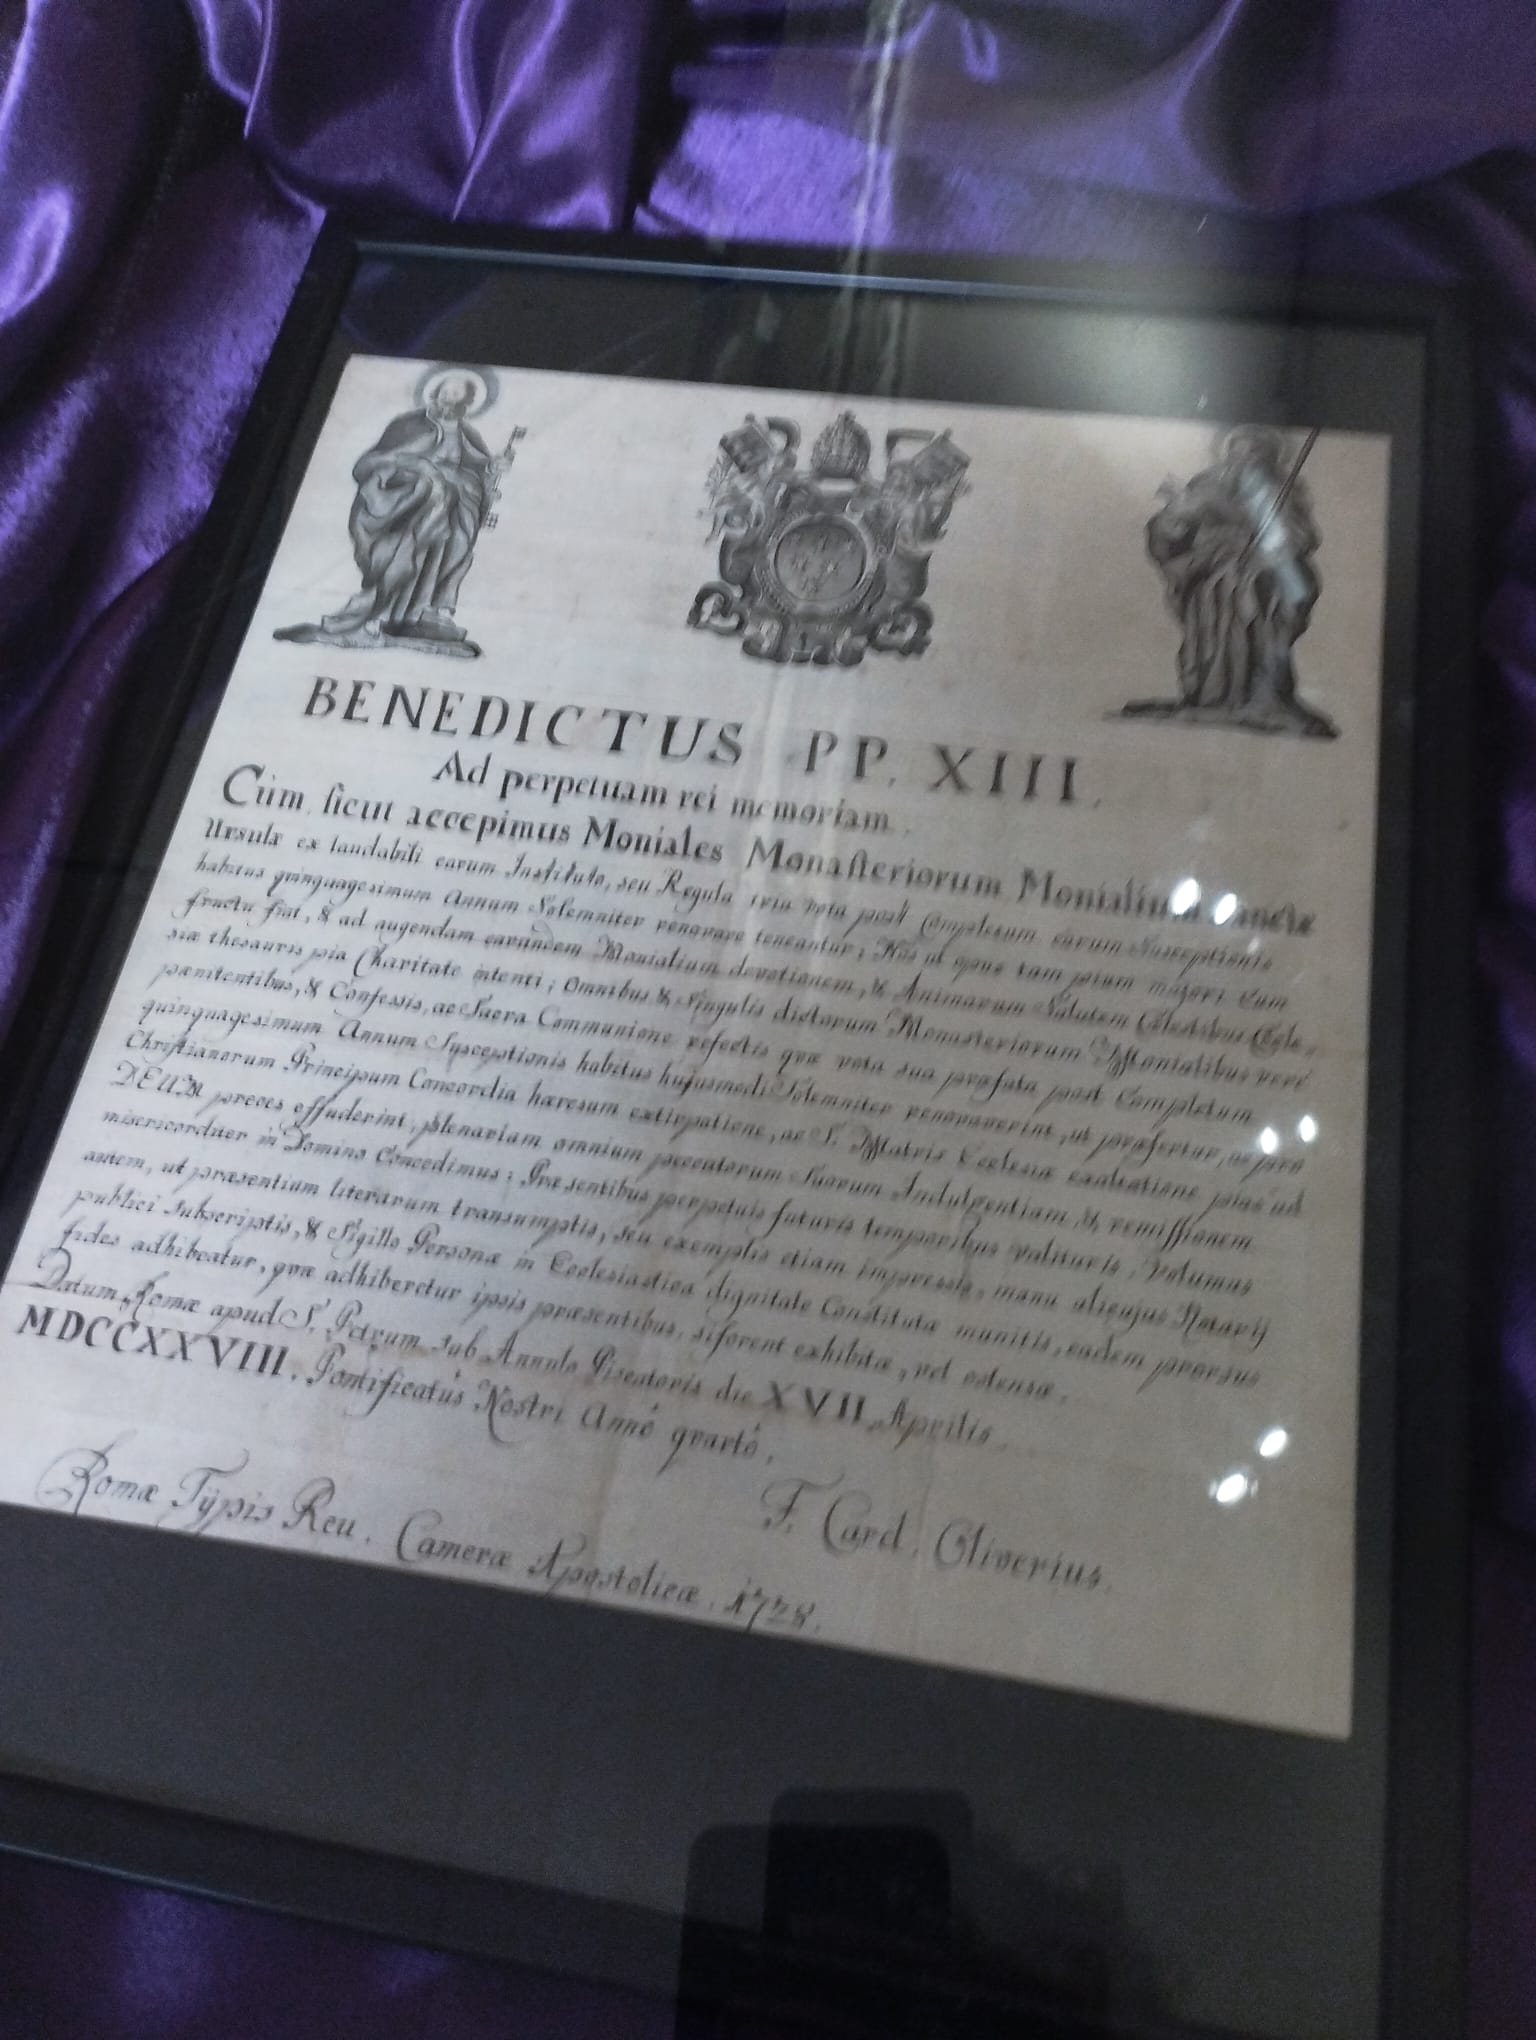 BENEDICTUS PP. XIII.
Ad perpetuam rei memoriam.
Cum, sicut accepimus Moniales Monasteriorum Monialium Sanctæ
Ursulæ ex laudabili earum Instituto, seu Regula tria vota post Completum earum Susceptionis
habitus quinquagesimum Annum Solemniter renovare teneantur; Nos ut opus tam pium majori cum
fructu fiat, & ad augendam earundem Monialium devotionem, & Animarum Salutem Cœlestibus Eccle,
siæ thesauris pia Charitate intenti; Omnibus & Singulis dictorum Monasteriorum Monialibus veré
pænitentibus, & Confessis, ac Sacra Communione refectis quæ vota sua præfata post Completum
quinquagesimum Annum Susceptionis habitus hujusmodi Solemniter renovaverint, ut præfertur, ac pro
Christianorum Principum Concordia hæresum extirpatione, ac S. Matris Ecclesiæ exaltatione pias ad
DEUM preces effuderint, plenariam omnium peccatorum Suorum Indulgentiam & remissionem
misericorditer in Domino Concedimus; Præsentibus perpetuis futuris temporibus valituris. Volumus
autem, ut præsentium literarum transumptis, seu exemplis etiam impressis, manu alicujus Notarij
publici subscriptis, & Sigillo Personæ in Ecclesiastica dignitate Constitutæ munitis, eadem prorsus
fides adhibeatur, quæ adhiberetur ipsis præsentibus, si forent exhibitæ, vel ostensæ.
Datum Romæ apud S. Petrum sub Annulo Piscatoris die XVII Aprilis
MDCCXXVIII. Pontificatûs Nostri Annó quartó.
F. Card. Oliverius.
Romæ Typis Reu. Cameræ Apostolicæ. 1728.